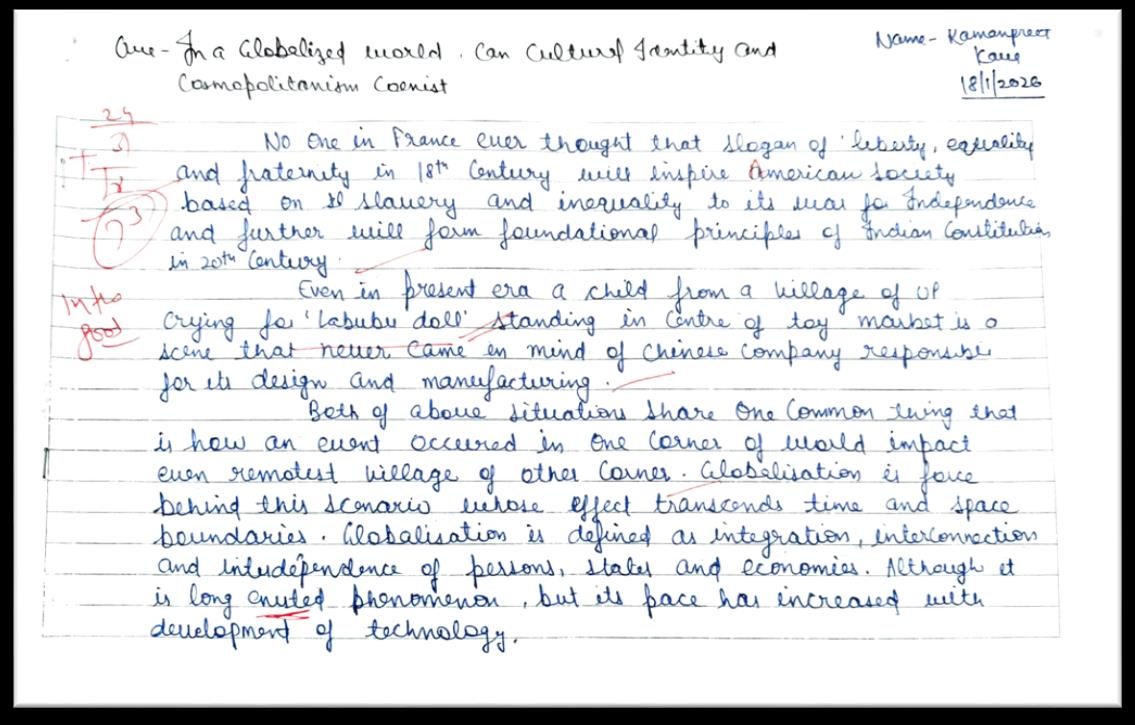 Que - In a Globalized world. Can Cultural Identity and
Cosmopolitanism Coexist
Name - Kamanpreet
Kaur
18/1/2026
24
+
73
No One in France ever thought that slogan of 'liberty, equality
and fraternity in 18th Century will inspire American Society
based on slavery and inequality to its war for Independence
and further will form foundational principles of Indian Constitution
in 20th Century.
Intro
good
Even in present era a child from a village of UP
Crying for 'Labubu doll' standing in Centre of toy market is a
scene that never came in mind of Chinese Company responsible
for its design and manufacturing.
Both of above situations share One Common thing that
is how an event occured in One Corner of world impact
even remotest village of other Corner. Globalisation is force
behind this scenario whose effect transcends time and space
boundaries. Globalisation is defined as integration, interconnection
and interdependence of persons, states and economies. Although it
is long phenomenon, but its pace has increased with
development of technology.